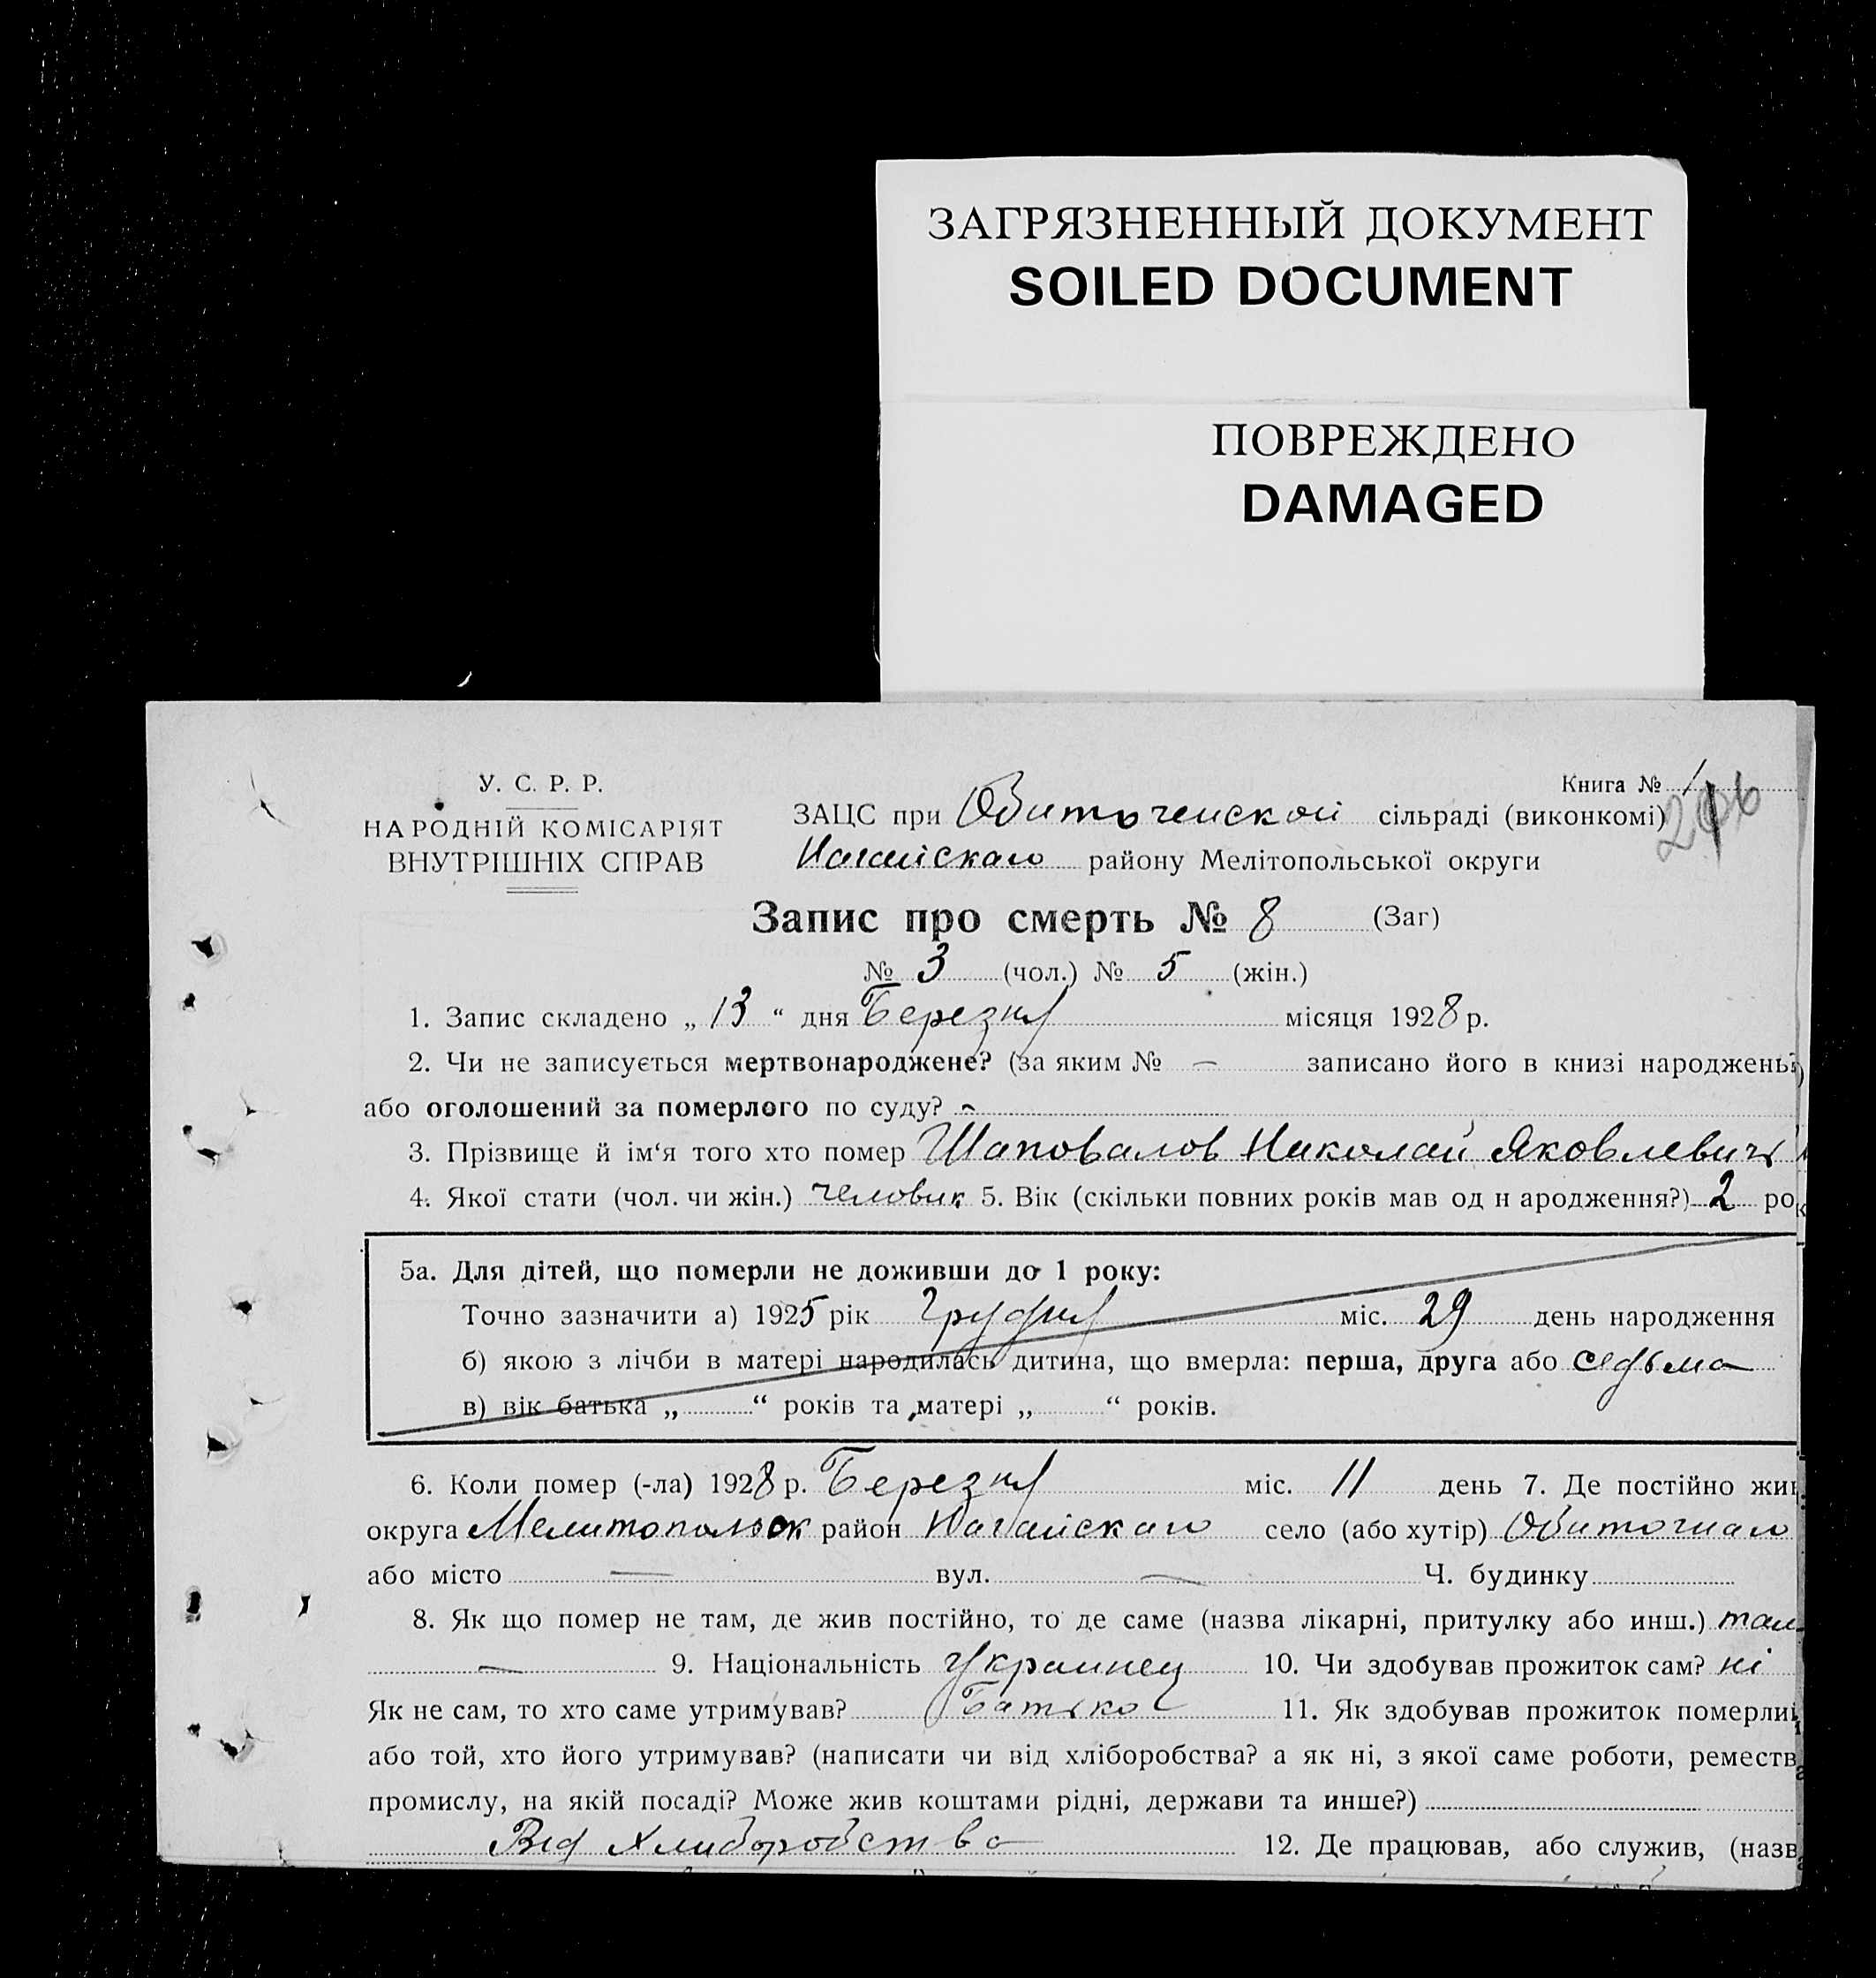 ЗАГРЯЗНЕННЫЙ ДОКУМЕНТ
SOILED DOCUMENT
ПОВРЕЖДЕНО
DAMAGED
У. С. Р. Р.
НАРОДНІЙ КОМІСАРІЯТ
ВНУТРІШНІХ СПРАВ
Книга № 1
ЗАЦС при Обиточенской сільраді (виконкомі)
Нагайскаго району Мелітопольської округи
Запис про смерть № 8 (Заг)
№ 3 (чол.) № 5 (жін.)
1. Запис складено „ 13 “ дня Березня місяця 1928 р.
2. Чи не записується мертвонароджене? (за яким № — записано його в книзі народжень?)
або оголошений за померлого по суду? -
3. Прізвище й ім‘я того хто помер Шаповалов Николай Яковлевичъ
4. Якої стати (чол. чи жін.) человик 5. Вік (скільки повних років мав од н ародження?) 2 рок
5а. Для дітей, що померли не доживши до 1 року:
Точно зазначити а) 1925 рік Грудня міс. 29 день народження
б) якою з лічби в матері народилась дитина, що вмерла: перша, друга або седьма
в) вік батька „ “ років та матері „ “ років.
6. Коли помер (-ла) 1928 р. Березня міс. 11 день 7. Де постійно жив
округа Мелитопольск район Нагайскаго село (або хутір) Обиточнаго
або місто — вул. — Ч. будинку
8. Як що помер не там, де жив постійно, то де саме (назва лікарні, притулку або инш.) там
— 9. Національність Украинец 10. Чи здобував прожиток сам? ні
Як не сам, то хто саме утримував? Батько 11. Як здобував прожиток померлий
або той, хто його утримував? (написати чи від хліборобства? а як ні, з якої саме роботи, реместв
промислу, на якій посаді? Може жив коштами рідні, держави та инше?)
Від Хлиборобства 12. Де працював, або служив, (назв